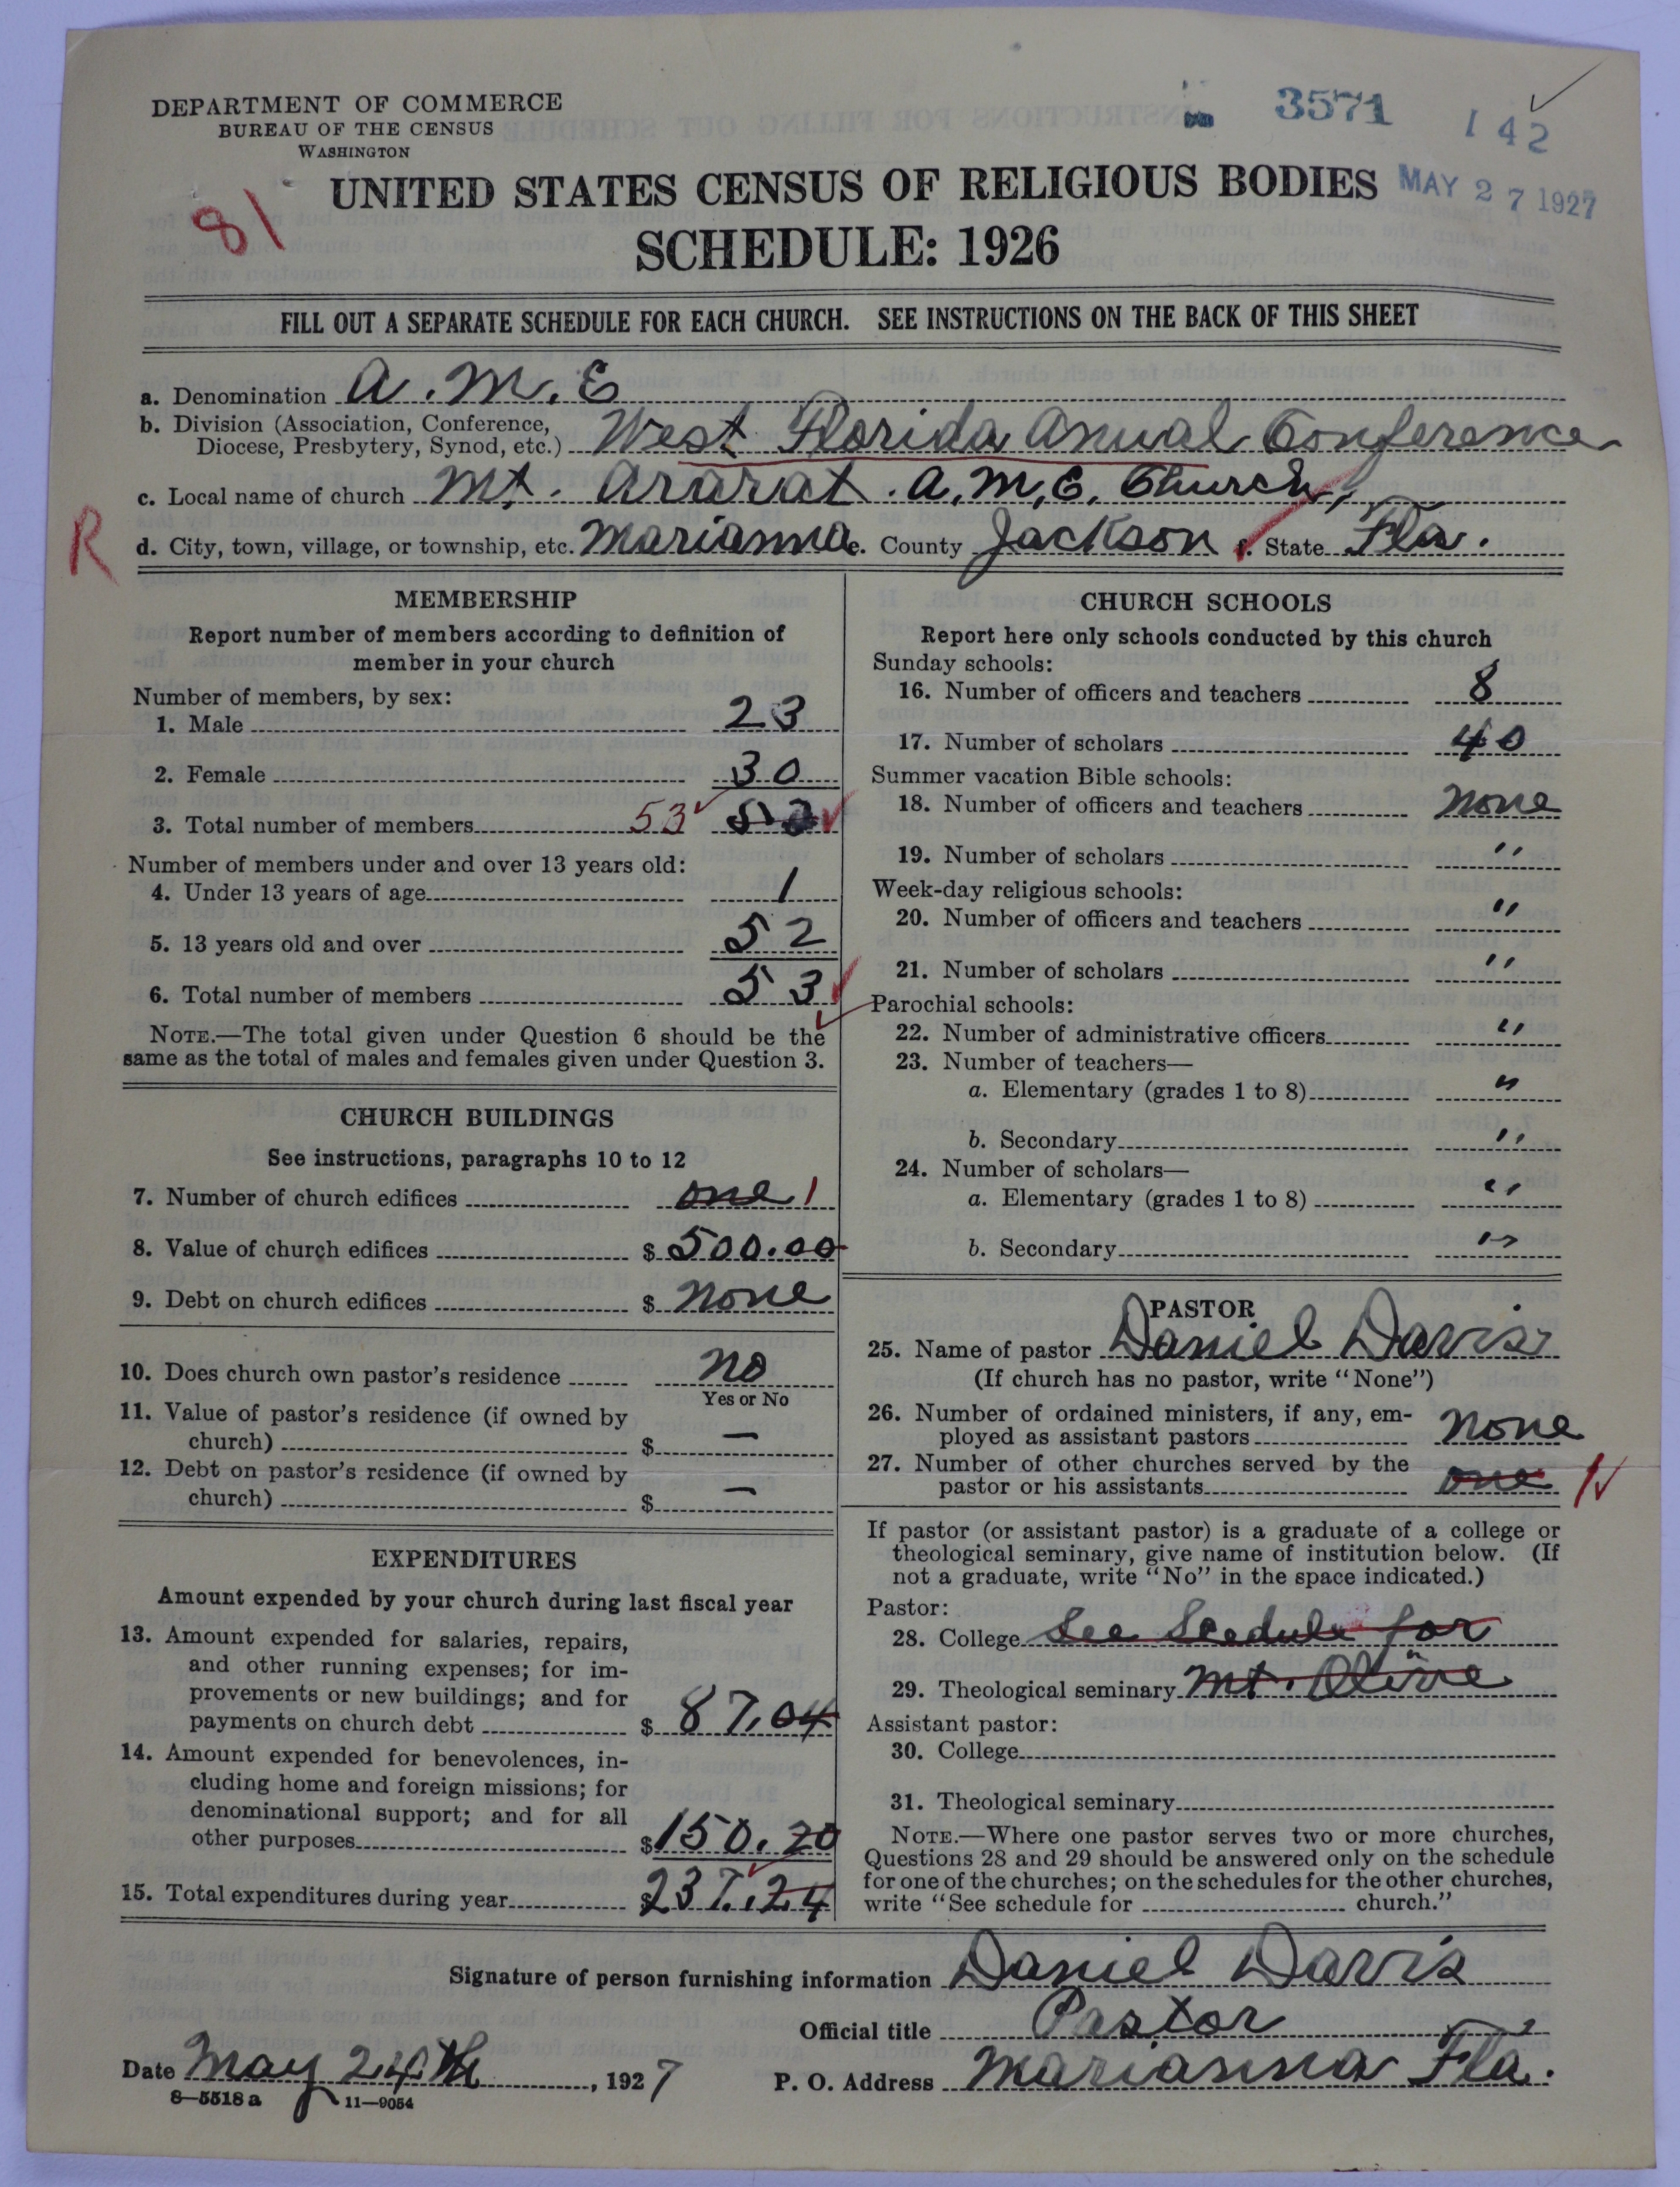 DEPARTMENT OF COMMERCE
BUREAU OF THE CENSUS
WASHINGTON
3571
142
81
UNITED STATES CENSUS OF RELIGIOUS BODIES
MAY 27 1927
SCHEDULE: 1926
FILL OUT A SEPARATE SCHEDULE FOR EACH CHURCH. SEE INSTRUCTIONS ON THE BACK OF THIS SHEET
a. Denomination A. M. E
b. Division (Association, Conference,
Diocese, Presbytery, Synod, etc.) West Florida Anual Conference
c. Local name of church Mt. Ararat. A. M. E. Church,
R
d. City, town, village, or township, etc. Marianna e. County Jackson f. State Fla.
MEMBERSHIP
Report number of members according to definition of
member in your church
Number of members, by sex:
1. Male 23
2. Female 30
3. Total number of members 53 53
Number of members under and over 13 years old:
4. Under 13 years of age 1
5. 13 years old and over 52
6. Total number of members 53
NOTE.—The total given under Question 6 should be the
same as the total of males and females given under Question 3.
CHURCH BUILDINGS
See instructions, paragraphs 10 to 12
7. Number of church edifices one 1
8. Value of church edifices $ 500.00
9. Debt on church edifices $ None
10. Does church own pastor's residence No
Yes or No
11. Value of pastor's residence (if owned by
church) $ —
12. Debt on pastor's residence (if owned by
church) $ —
EXPENDITURES
Amount expended by your church during last fiscal year
13. Amount expended for salaries, repairs,
and other running expenses; for im-
provements or new buildings; and for
payments on church debt $ 87.04
14. Amount expended for benevolences, in-
cluding home and foreign missions; for
denominational support; and for all
other purposes $ 150.20
15. Total expenditures during year $ 237.24
CHURCH SCHOOLS
Report here only schools conducted by this church
Sunday schools:
16. Number of officers and teachers 8
17. Number of scholars 40
Summer vacation Bible schools:
18. Number of officers and teachers None
19. Number of scholars "
Week-day religious schools:
20. Number of officers and teachers "
21. Number of scholars "
Parochial schools:
22. Number of administrative officers "
23. Number of teachers—
a. Elementary (grades 1 to 8) "
b. Secondary "
24. Number of scholars—
a. Elementary (grades 1 to 8) "
b. Secondary "
PASTOR
25. Name of pastor Daniel Davis
(If church has no pastor, write "None")
26. Number of ordained ministers, if any, em-
ployed as assistant pastors None
27. Number of other churches served by the
pastor or his assistants one 1
If pastor (or assistant pastor) is a graduate of a college or
theological seminary, give name of institution below. (If
not a graduate, write "No" in the space indicated.)
Pastor:
28. College See Scedule for
29. Theological seminary Mt. Olive
Assistant pastor:
30. College
31. Theological seminary
NOTE.—Where one pastor serves two or more churches,
Questions 28 and 29 should be answered only on the schedule
for one of the churches; on the schedules for the other churches,
write "See schedule for church."
Signature of person furnishing information Daniel Davis
Official title Pastor
Date May 24th, 1927
P. O. Address Marianna Fla.
8—5518 a 11—9054